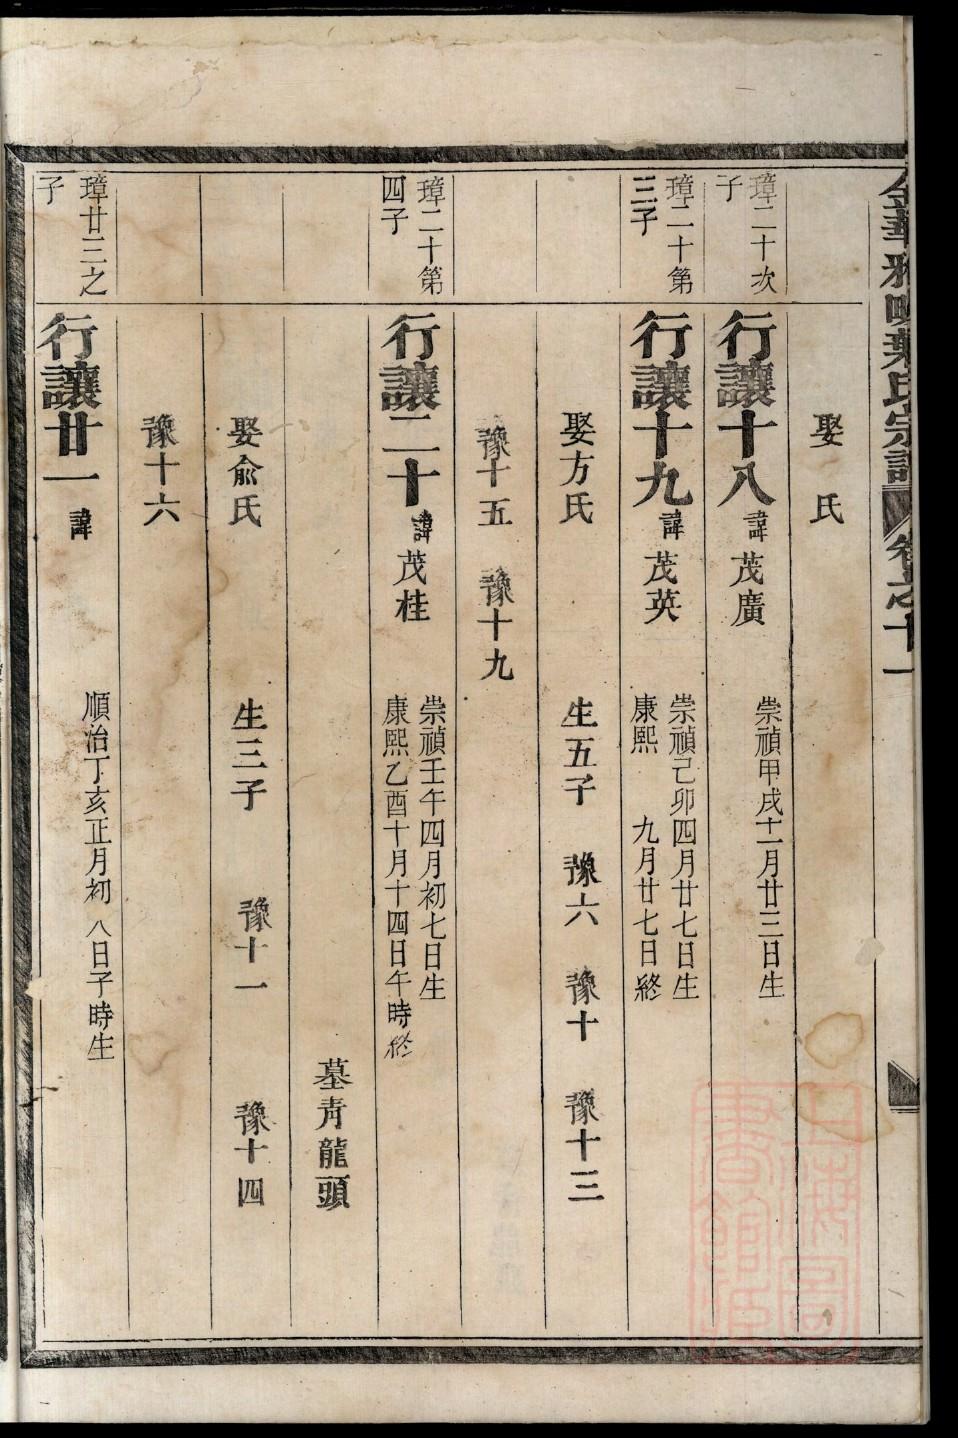 金華雅畈葉氏宗譜 卷之十一
娶 氏
璋二十次子
行讓十八 諱茂廣 崇禎甲戌十一月廿三日生
璋二十第三子
行讓十九 諱茂英 崇禎己卯四月廿七日生
康熙 九月廿七日終
娶方氏 生五子 豫六 豫十 豫十三
豫十五 豫十九
璋二十第四子
行讓二十 諱茂桂 崇禎壬午四月初七日生
康熙乙酉十月十四日午時終
墓青龍頭
娶俞氏 生三子 豫十一 豫十四
豫十六
璋廿三之子
行讓廿一 諱 順治丁亥正月初八日子時生
上海圖書館藏